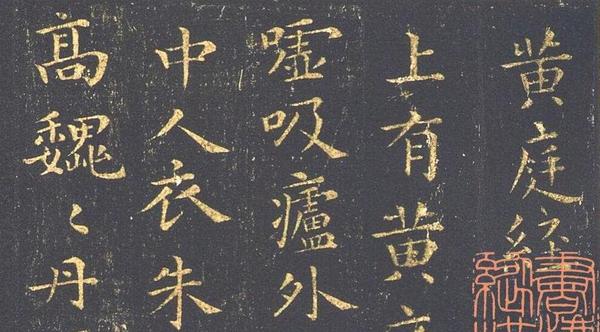 黄庭經
上有黄
嘘吸廬外
中人衣朱
高魏〻丹